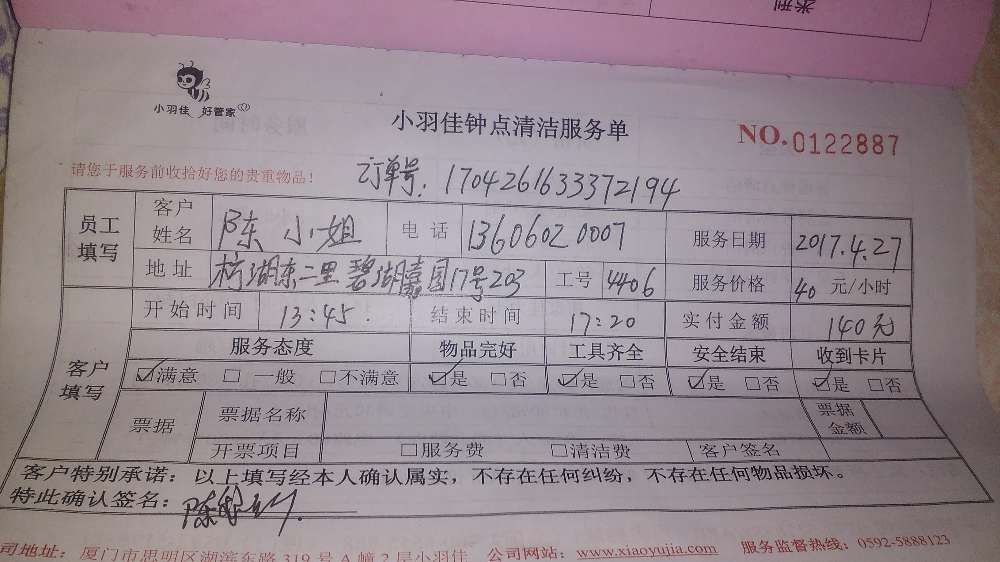 类型
小羽佳 好管家
小羽佳钟点清洁服务单
NO.0122887
请您于服务前收拾好您的贵重物品！
订单号：1704261633372194
员工填写 客户姓名 陈小姐 电话 13606020007 服务日期 2017.4.27
地址 湖东二里碧湖嘉园17号203 工号 4406 服务价格 40 元/小时
开始时间 13:45 结束时间 17:20 实付金额 140元
客户填写 服务态度 物品完好 工具齐全 安全结束 收到卡片
☑满意 □一般 □不满意 ☑是 □否 ☑是 □否 ☑是 □否 ☑是 □否
票据 票据名称 票据金额
开票项目 □服务费 □清洁费 客户签名
客户特别承诺：以上填写经本人确认属实，不存在任何纠纷，不存在任何物品损坏。
特此确认签名：陈
司地址：厦门市思明区湖滨东路319号A幢2层小羽佳 公司网站：www.xiaoyujia.com 服务监督热线：0592-5888123